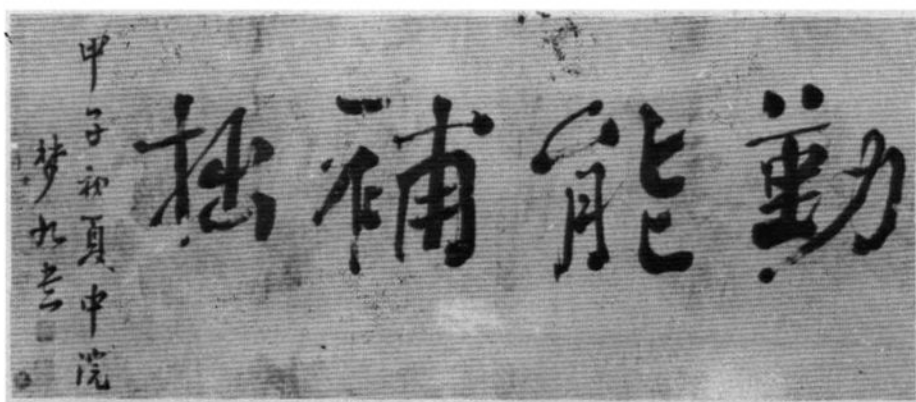 勤能補拙
甲子初夏中浣
夢九書